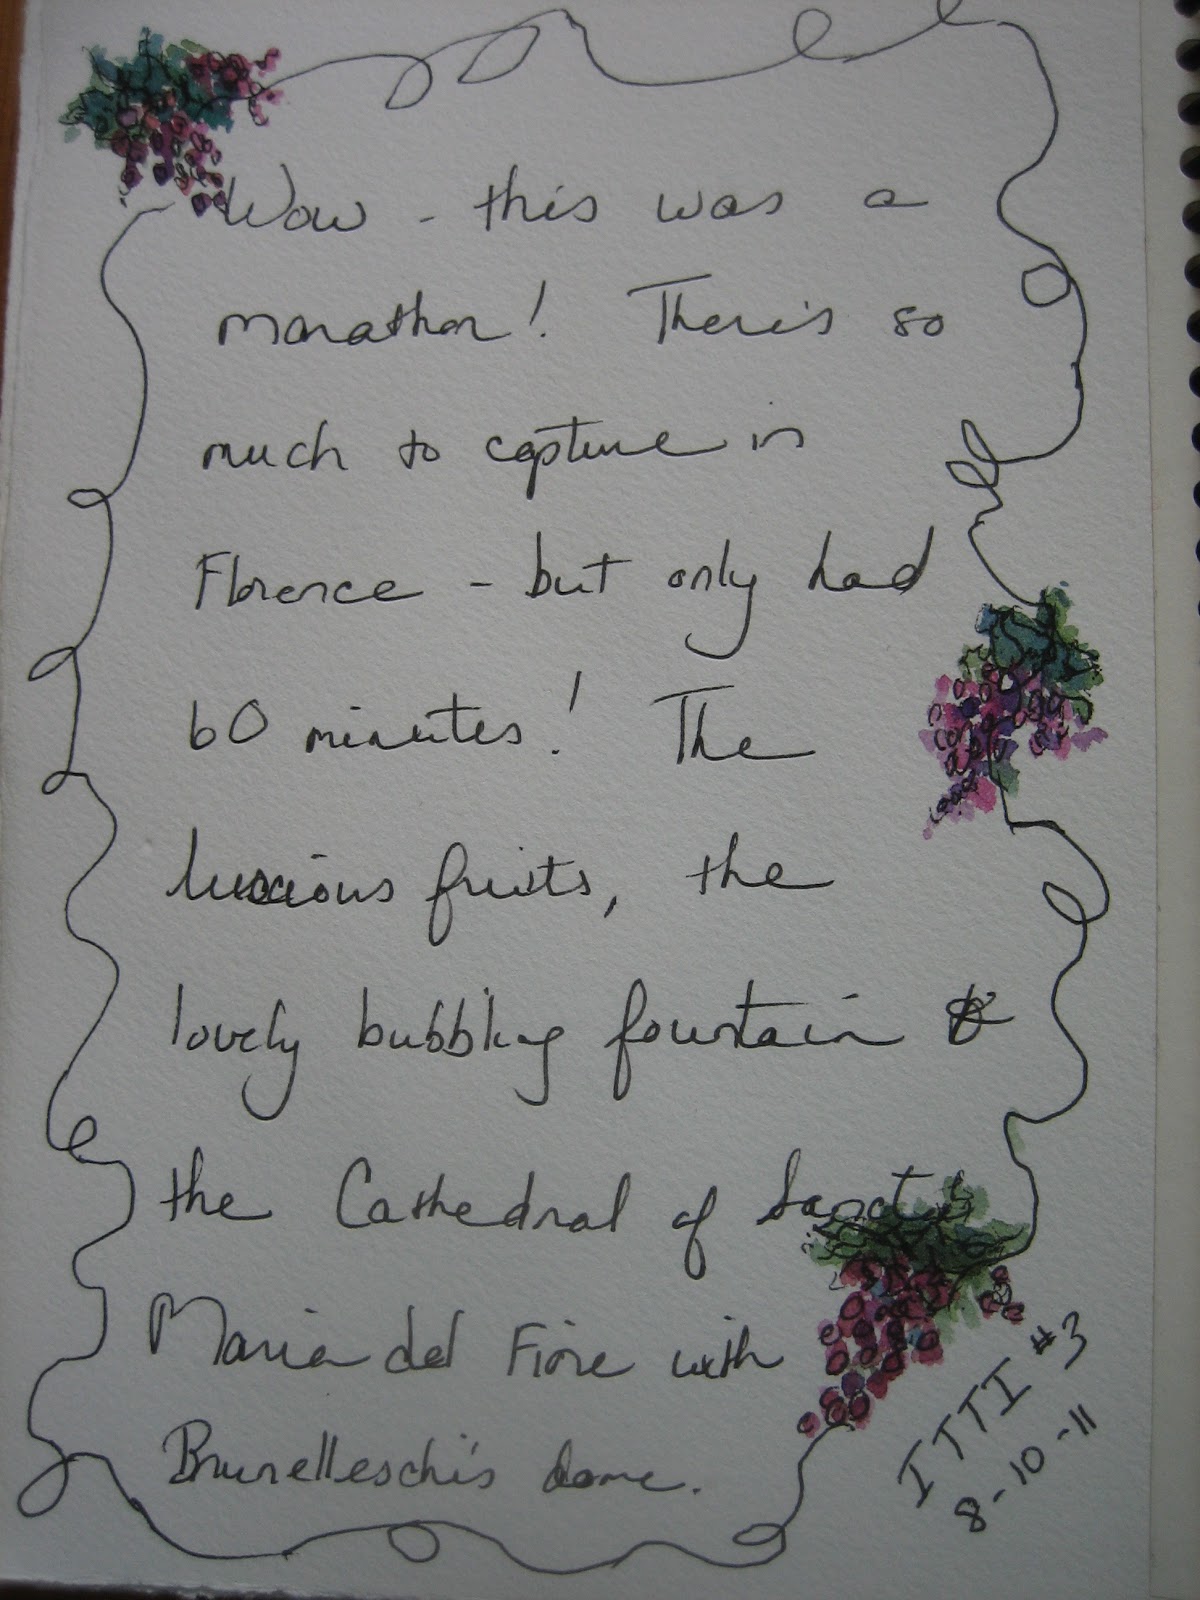 Wow - this was a
marathon! There's so
much to capture in
Florence - but only had
60 minutes! The
luscious fruits, the
lovely bubbling fountain &
the Cathedral of Santa
Maria del Fiore with
Brunelleschi's dome.
ITTI #3
8-10-11